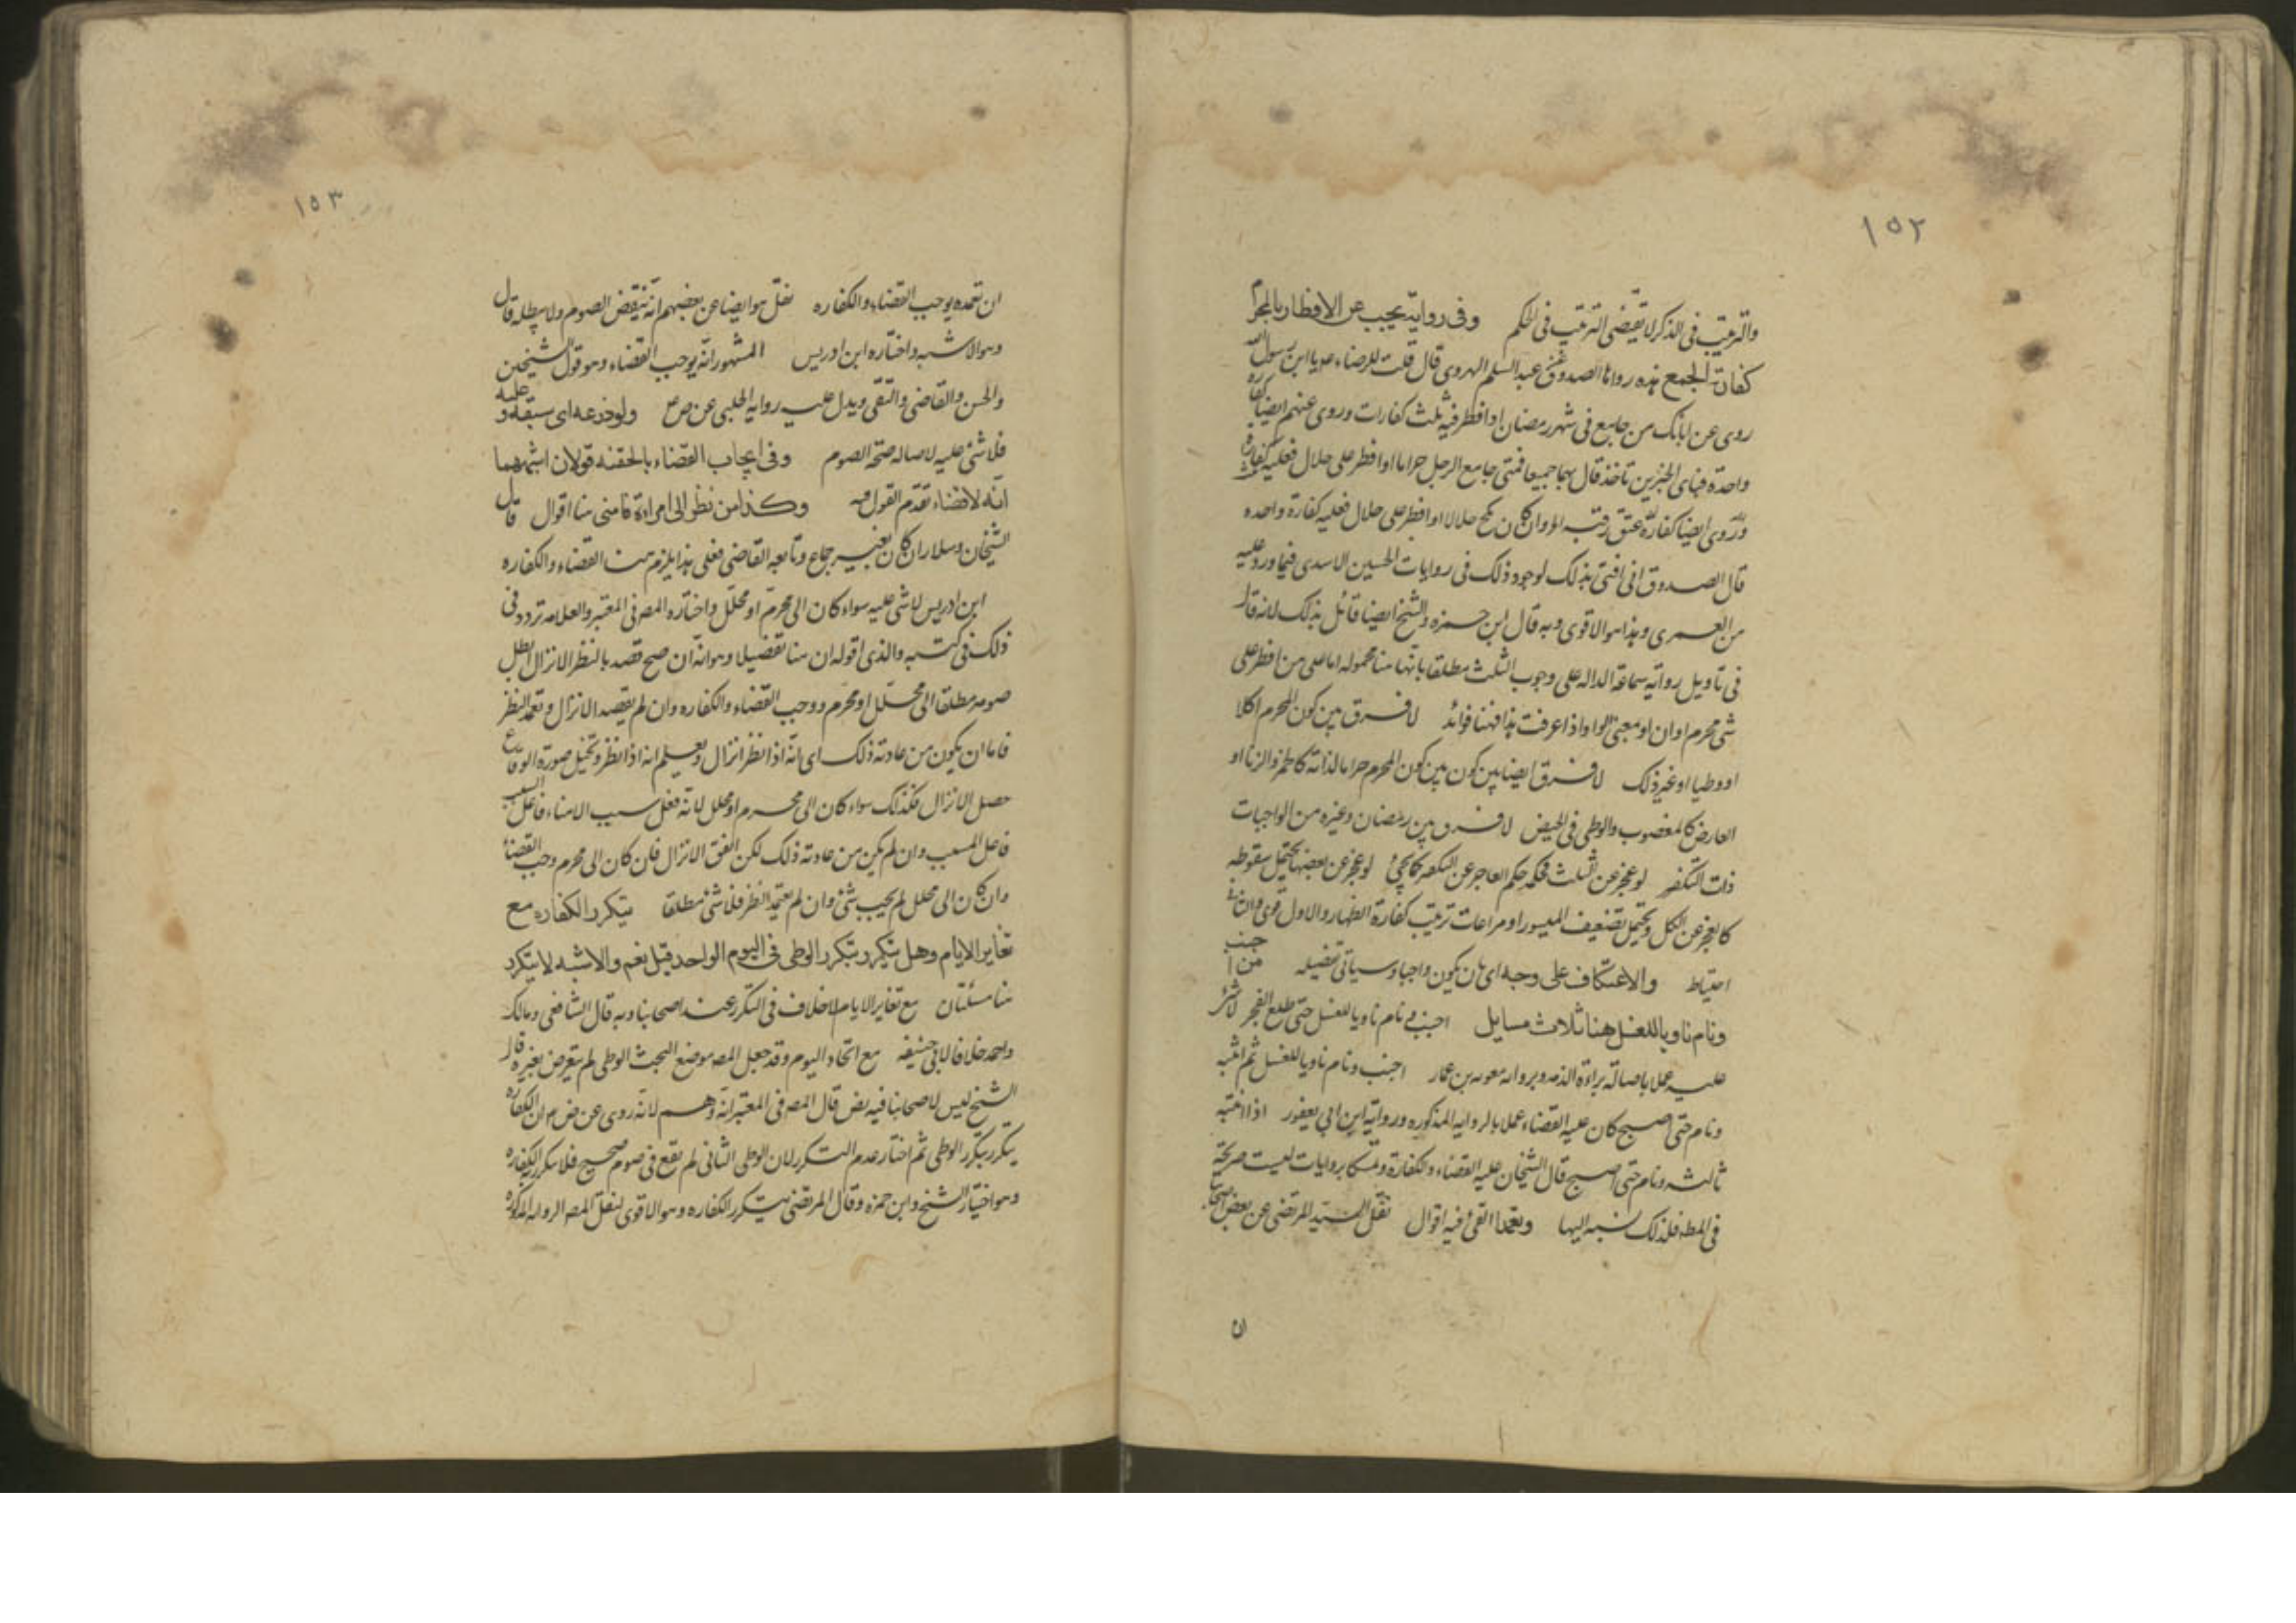 ١٥٢
والترتيب فى الذكر لا يقتضى الترتيب فى الحكم وفى رواية يجب عن الافطار بالمحرم
كفارة الجمع هذه رواها الصدوق عن عبد السلم الهروى قال قلت للرضاء يا ابن رسول الله
روى عن ابائك من جامع فى شهر رمضان او افطر فيه ثلث كفارات وروى عنهم ايضا كفارة
واحدة فباى الخبرين تاخذ قال بهما جميعا فمتى جامع الرجل حراما او افطر على حلال فعليه كفارة
وروى ايضا كفارة عتق رقبه وان كان نكح حلالا او افطر على حلال فعليه كفارة واحده
قال الصدوق انى افتى بذلك لوجود ذلك فى روايات الحسين الاسدى فيما ورد عليه
من العمرى وهذا هو الاقوى وبه قال ابن حمزه والشيخ ايضا قائل بذلك لانه قال
فى تاويل رواية سماعة الداله على وجوب الثلث مطلقا بانها هنا محموله اما على من افطر على
شى محرم او ان او بمعنى الواو اذا عرفت هذا فهنا فوائد لا فرق بين كون المحرم اكلا
او وطيا او غير ذلك لا فرق ايضا بين كون بين كون المحرم حراما لذاته كالخمر والزنا او
العارض كالمغصوب والوطى فى الحيض لا فرق بين رمضان وغيره من الواجبات
ذات التكفير لو عجز عن الثلث فحكمه حكم العاجز عن التكفير كما يجئ لو عجز عن بعضها يحتمل سقوطه
كالعجز عن الكل ويحتمل تضعيف الميسور او مراعات ترتيب كفارة الظهار والاول قوى والثانى
احتياط والاعتكاف على وجه اى بان يكون واجبا وسياتى تفصيله من اجنب
ونام ناويا للغسل هنا ثلاث مسايل اجنب ونام ناويا للغسل حتى طلع الفجر لا شئ
عليه عملا باصالة براءة الذمه وبروايه معويه بن عمار اجنب ونام ناويا للغسل ثم انتبه
ونام حتى اصبح كان عليه القضاء عملا بالروايه المذكوره ورواية ابن ابى يعفور اذا انتبه
ثالثه ونام حتى اصبح قال الشيخان عليه القضاء والكفارة وتمسكا بروايات ليست صريحة
فى المط فلذلك نسبه اليها وتعمد القئ فيه اقوال نقل السيد المرتضى عن بعض اصحابنا
ان
١٥٣
ان تعمده يوجب القضاء والكفاره نقل هو ايضا عن بعضهم انه ينقض الصوم ولا يبطله قال
وهو الاشبه واختاره ابن ادريس المشهور انه يوجب القضاء وهو قول الشيخين
والحسن والقاضى والتقى ويدل عليه رواية الحلبى عن ص ع ولو ذرعه اى سبقه و عليه
فلا شئ عليه لاصاله صحة الصوم وفى ايجاب القضاء بالحقنه قولان اشبههما
انه لا قضاء تقدم القول فيه وكذا من نظر الى امراة فامنى هنا اقوال قال
الشيخان وسلار ان كان بغير جماع وتابعه القاضى فعلى هذا يلزم منه القضاء والكفاره
ابن ادريس لا شى عليه سواء كان الى محرم او محلل واختاره المص فى المعتبر والعلامه تردد فى
ذلك فى كتبه والذى اقوله ان هنا تفصيلا وهو انه ان صح قصد بالنظر الانزال ابطل
صومه مطلقا الى محلل او محرم ووجب القضاء والكفاره وان لم يقصد الانزال وتعمد النظر
فاما ان يكون من عادته ذلك اى انه اذا نظر انزال ويعلم انه اذا نظر وتخيل صورة الوقاع
حصل الانزال فكذلك سواء كان الى محرم او محلل لانه فعل سبب الامناء فاعل السبب
فاعل المسبب وان لم يكن من عادته ذلك لكن اتفق الانزال فان كان الى محرم وجب القضا
وان كان الى محلل لم يجب شئ وان لم يتعمد النظر فلا شئ مطلقا يتكرر الكفاره مع
تغاير الايام وهل يتكرر بتكرر الوطى فى اليوم الواحد قيل نعم والاشبه لا يتكرر
هنا مسئلتان مع تغاير الايام لا خلاف فى التكرر عند اصحابنا وبه قال الشافعى ومالك
واحمد خلافا لابى حنيفه مع اتحاد اليوم وقد جعل المص موضع البحث الوطى لم يتعرض لغيره قال
الشيخ ليس لاصحابنا فيه نص قال المص فى المعتبر انه وهم لانه روى عن ض ان الكفاره
يتكرر بتكرر الوطى ثم اختار عدم التكرر لان الوطى الثانى لم يقع فى صوم صحيح فلا يتكرر الكفاره
وهو اختيار الشيخ وابن حمزه وقال المرتضى يتكرر الكفاره وهو الاقوى لنقل المص الروايه المذكوره